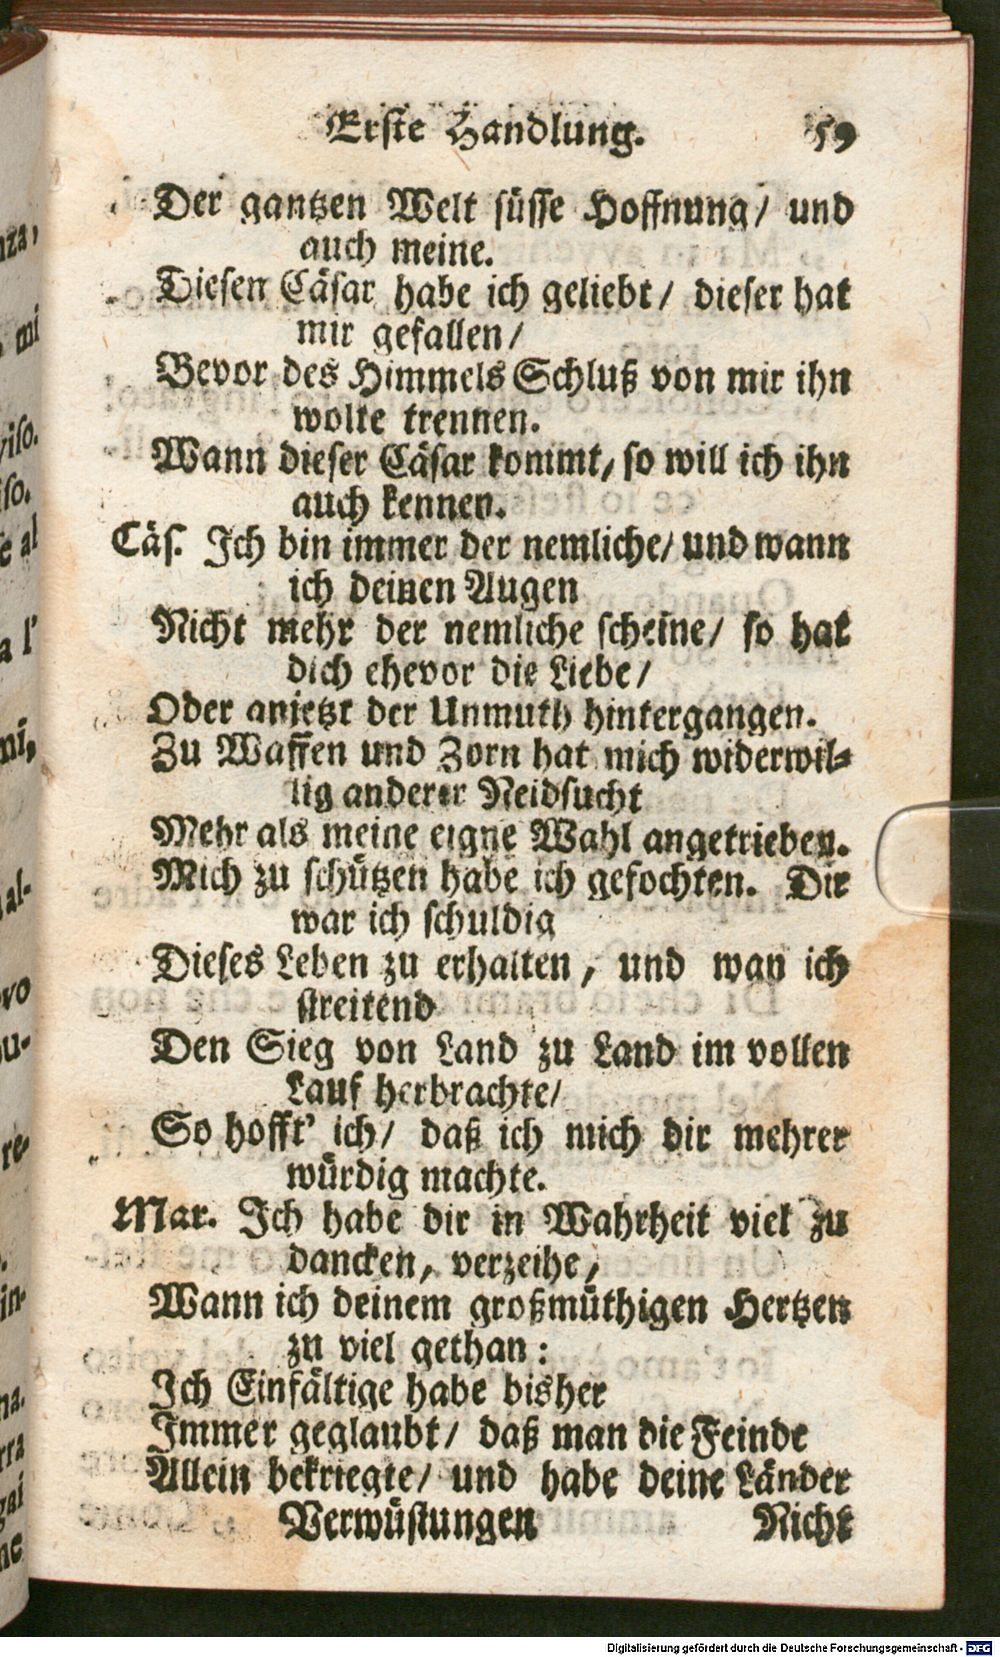 Erste Handlung. 59
Der gantzen Welt süsse Hoffnung/ und
auch meine.
Diesen Cäsar habe ich geliebt/ dieser hat
mir gefallen/
Bevor des Himmels Schluß von mir ihn
wolte trennen.
Wann dieser Cäsar kommt/ so will ich ihn
auch kennen.
Cäs. Ich bin immer der nemliche/ und wann
ich deinen Augen
Nicht mehr der nemliche scheine/ so hat
dich ehevor die Liebe/
Oder anjetzt der Unmuth hintergangen.
Zu Waffen und Zorn hat mich widerwil-
lig anderer Neidsucht
Mehr als meine eigne Wahl angetrieben.
Mich zu schützen habe ich gefochten. Dir
war ich schuldig
Dieses Leben zu erhalten, und wan ich
streitend
Den Sieg von Land zu Land im vollen
Lauf herbrachte/
So hofft' ich/ daß ich mich dir mehrer
würdig machte.
Mar. Ich habe dir in Wahrheit viel zu
dancken, verzeihe,
Wann ich deinem großmüthigen Hertzen
zu viel gethan:
Ich Einfältige habe bisher
Immer geglaubt/ daß man die Feinde
Allein bekriegte/ und habe deine Länder
Verwüstungen Nicht
nza,
, mi
viso.
iso.
e al
a l'
ni,
al-
vo
u-
re-
in-
na.
rra
gai
ne
Digitalisierung gefördert durch die Deutsche Forschungsgemeinschaft - DFG